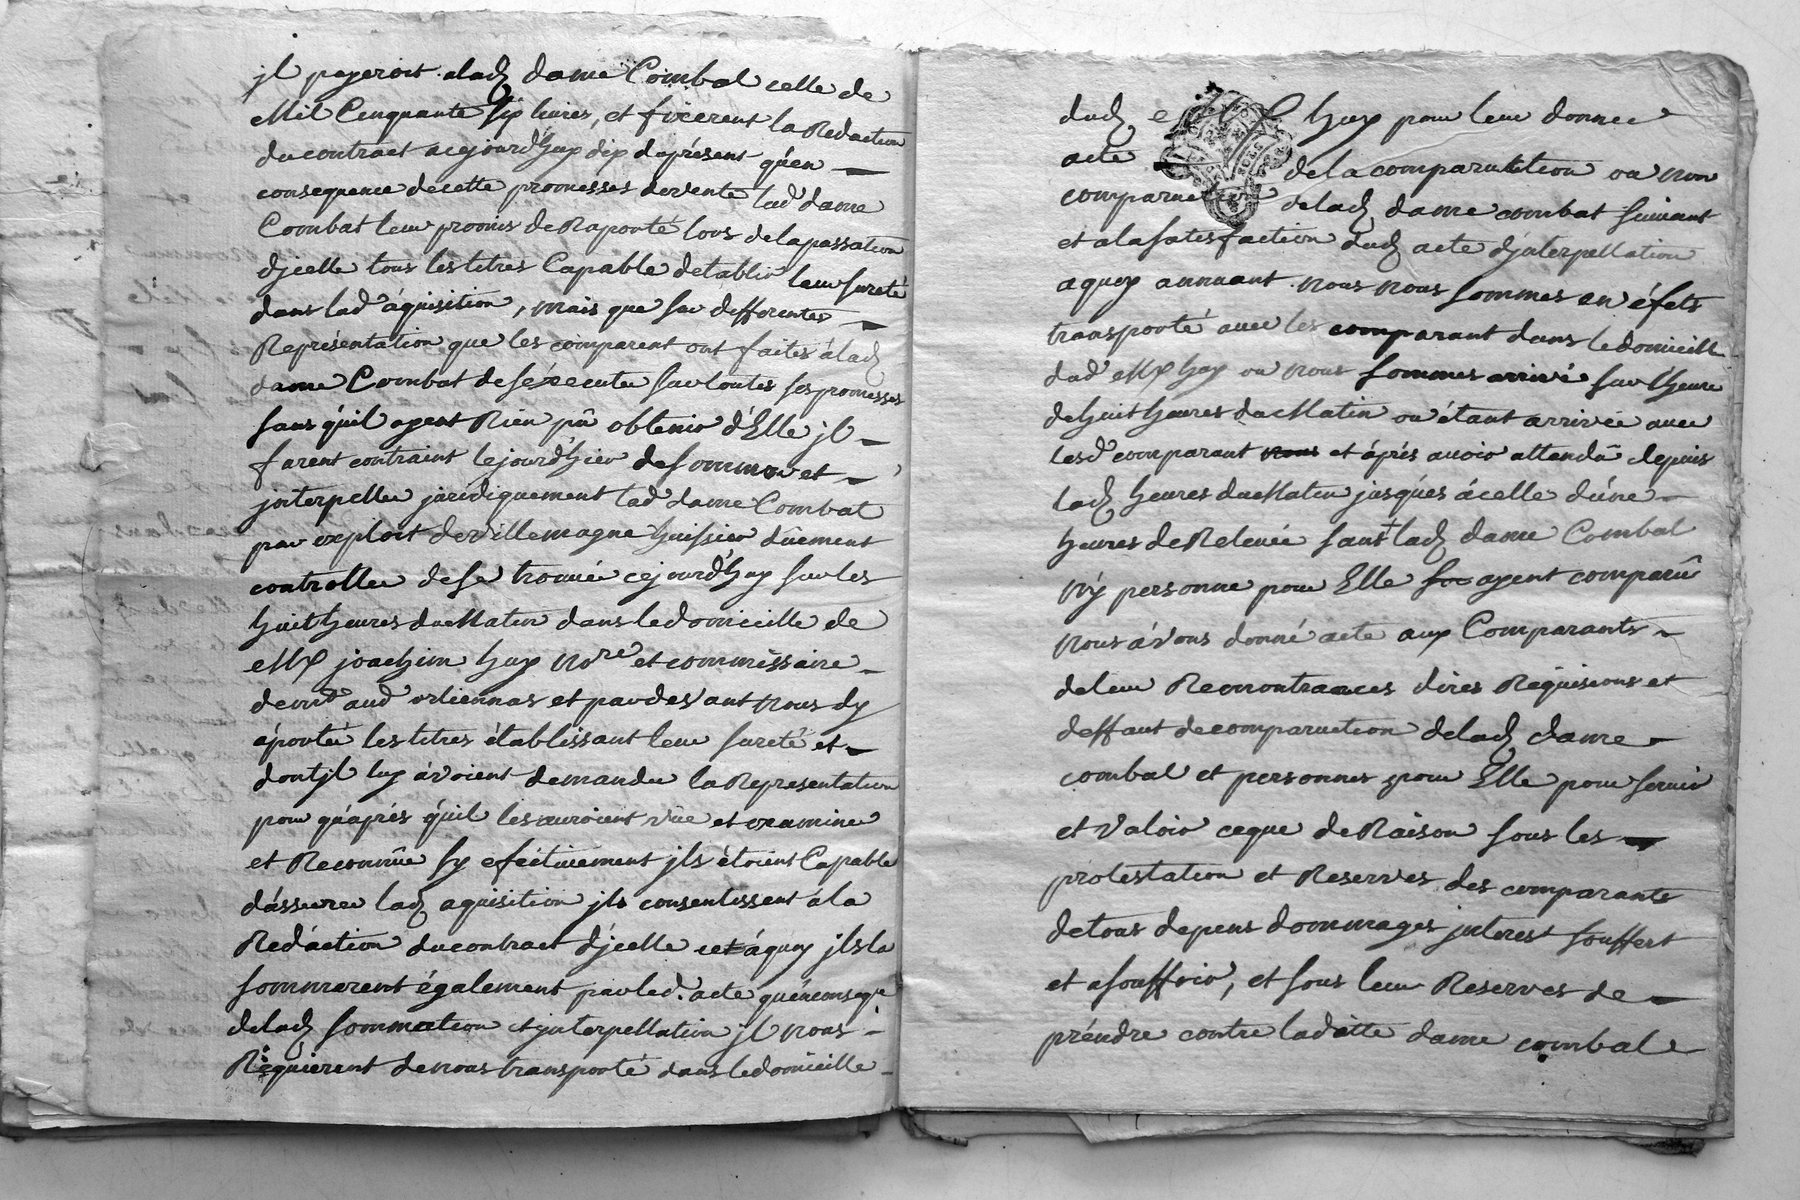 jl payeroit alad dame Combal celle de
Mil Cinquante six livres, et fixerent la Redaction
du contract acejourd'huy dix daprésent qu'en
consequence decette promesses devente lad dame
Combal leur promis de Raporté lors delapassation
djcelle tous lestitres Capable detablir leur sureté
dans lad áquisition, mais que sur differentes
Représentation que les comparent ont faites álad
dame Combal desé executer sur toutes ses promesses
sans qu'il ayent Rien pû obtenir d'Elle jl
furent contraint lejourd'hier desommer et
jnterpeller juridiquement lad dame Combal
par exploit de Villemagne huissier dûement
controller dese trouvée cejourd'huy sur les
huit heures duMatin dans ledomicille de
Me joachim huy Nore et commissaire
aud orliennas et pardevant Nous dy
áporter les titres établissant leur sureté et
dont jl luy ávoient demander la Representation
pour qu'aprés qu'il lesauroient vûe et examine
et Reconnûe sy efectivement jls étoient Capable
dássurer lad aquisition jls consentissent ála
Redáction ducontract djcelle et áquoy jls la
sommerent également par led. acte qu'enconseqce
delad sommation et jnterpellation jl nous
Requierent denous transporté dans ledomicille
dud Me huy pour leur donner
acte delacomparution ou non
comparution delad dame combal suivant
et alasatisfaction dud acte djnterpellation
aquoy annuant nous nous sommes en éfets
transporté avec les comparant dans ledomicille
dud Me huy ou nous sommes arrivé sur l'heure
dehuit heures duMatin ou étant arrivée avec
lesd comparant et áprés avoir attendû depuis
lad heures duMatin jusqu'es ácelle d'une
heures deRelevée sans lad dame Combal
ny personne pour Elle ayent comparû
Nous ávons donné acte aux Comparants
deleur Remontrances dires Réquisions et
deffaut decomparution delad dame
combal et personnes pour Elle pour servir
et valoir ceque deRaison sous les
protestation et Reserves des comparants
detous depens dommages jnterest souffert
et asouffrir, et sous leur Reserves de
préndre contre laditte dame combal